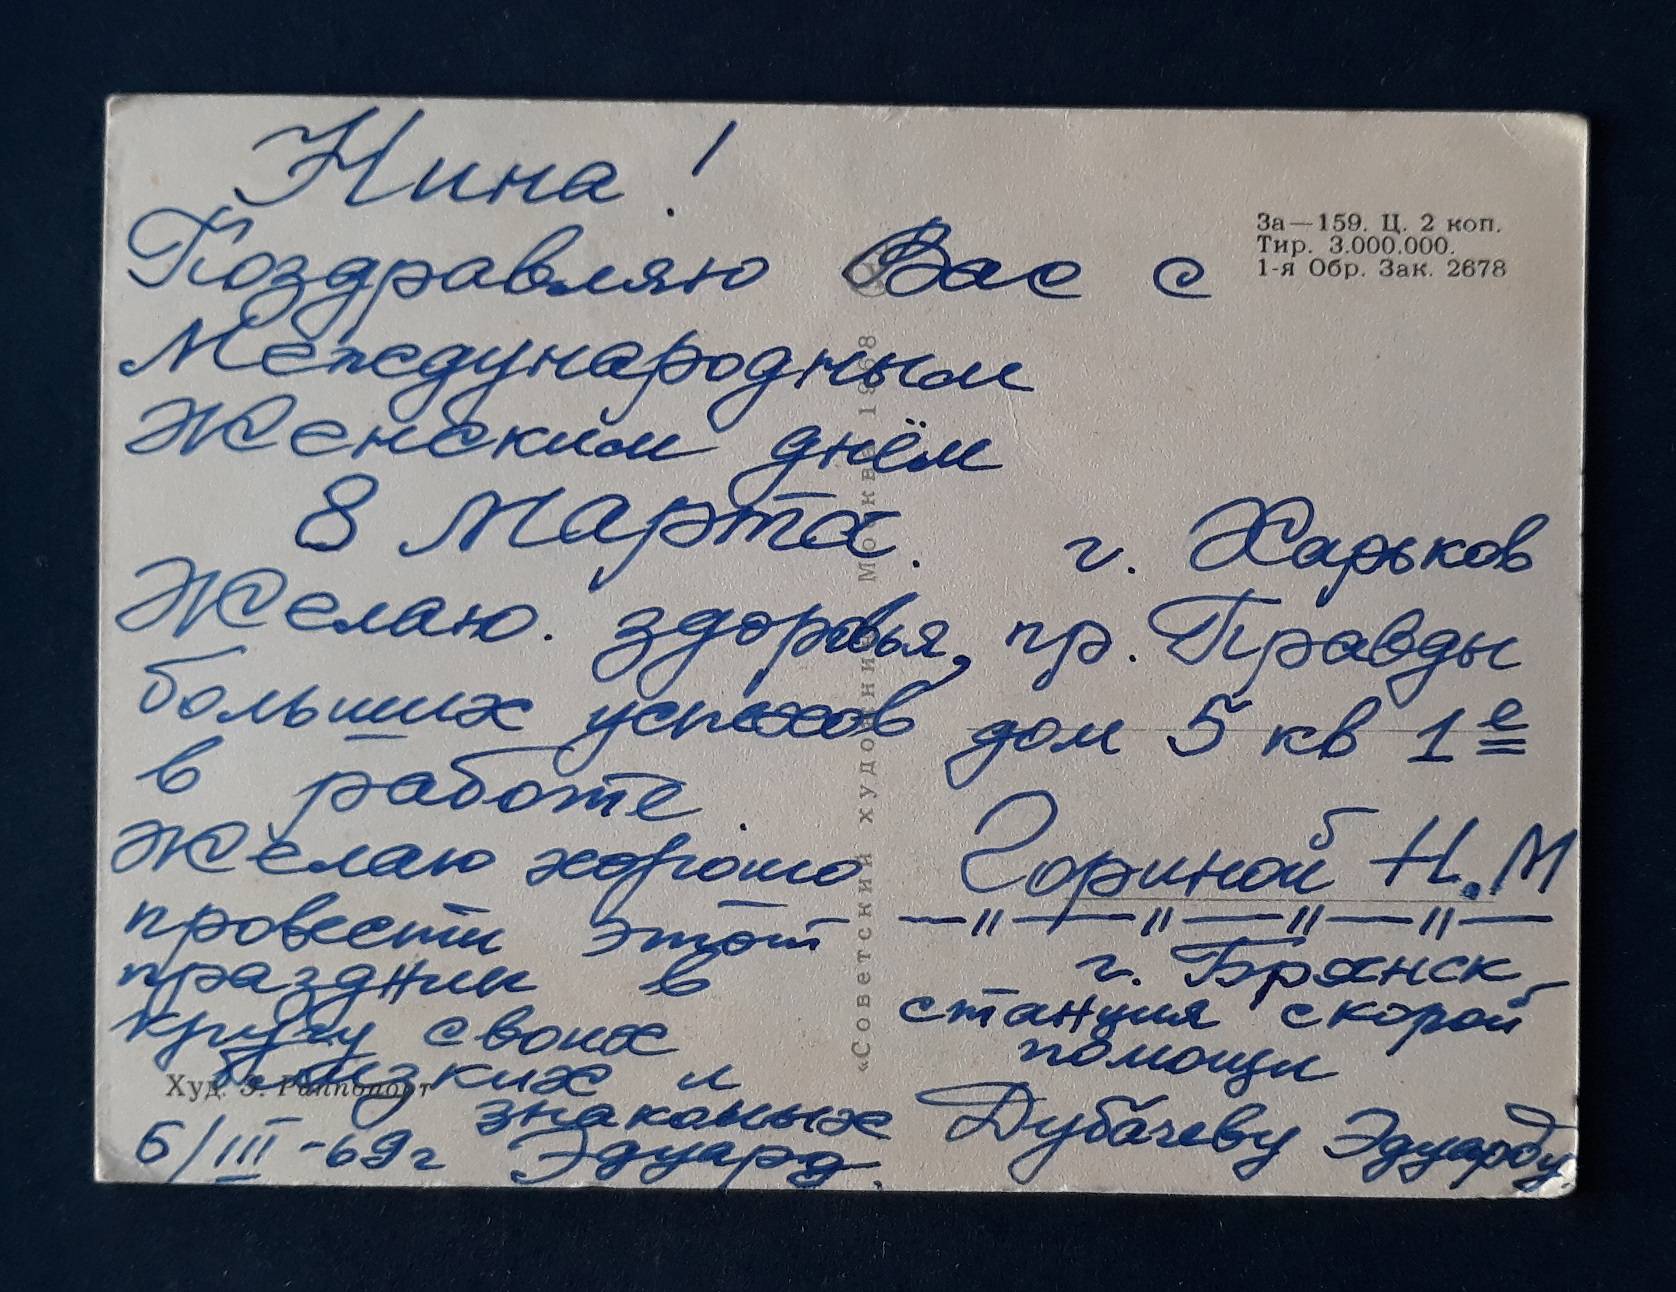 Нина!
Поздравляю Вас с
Международным
Женским днём
8 Марта.
Желаю здоровья,
больших успехов
в работе.
Желаю хорошо
провести этот
праздник в
кругу своих
близких и
знакомых
6/III-69г Эдуард.
Худ. Э. Раппопорт
«Советский художник» Москва 1968
За—159. Ц. 2 коп.
Тир. 3.000.000.
1-я Обр. Зак. 2678
г. Харьков
пр. Правды
дом 5 кв 1е
Гориной Н.М
—"—"—"—"—
г. Брянск
станция скорой
помощи
Дубачеву Эдуарду